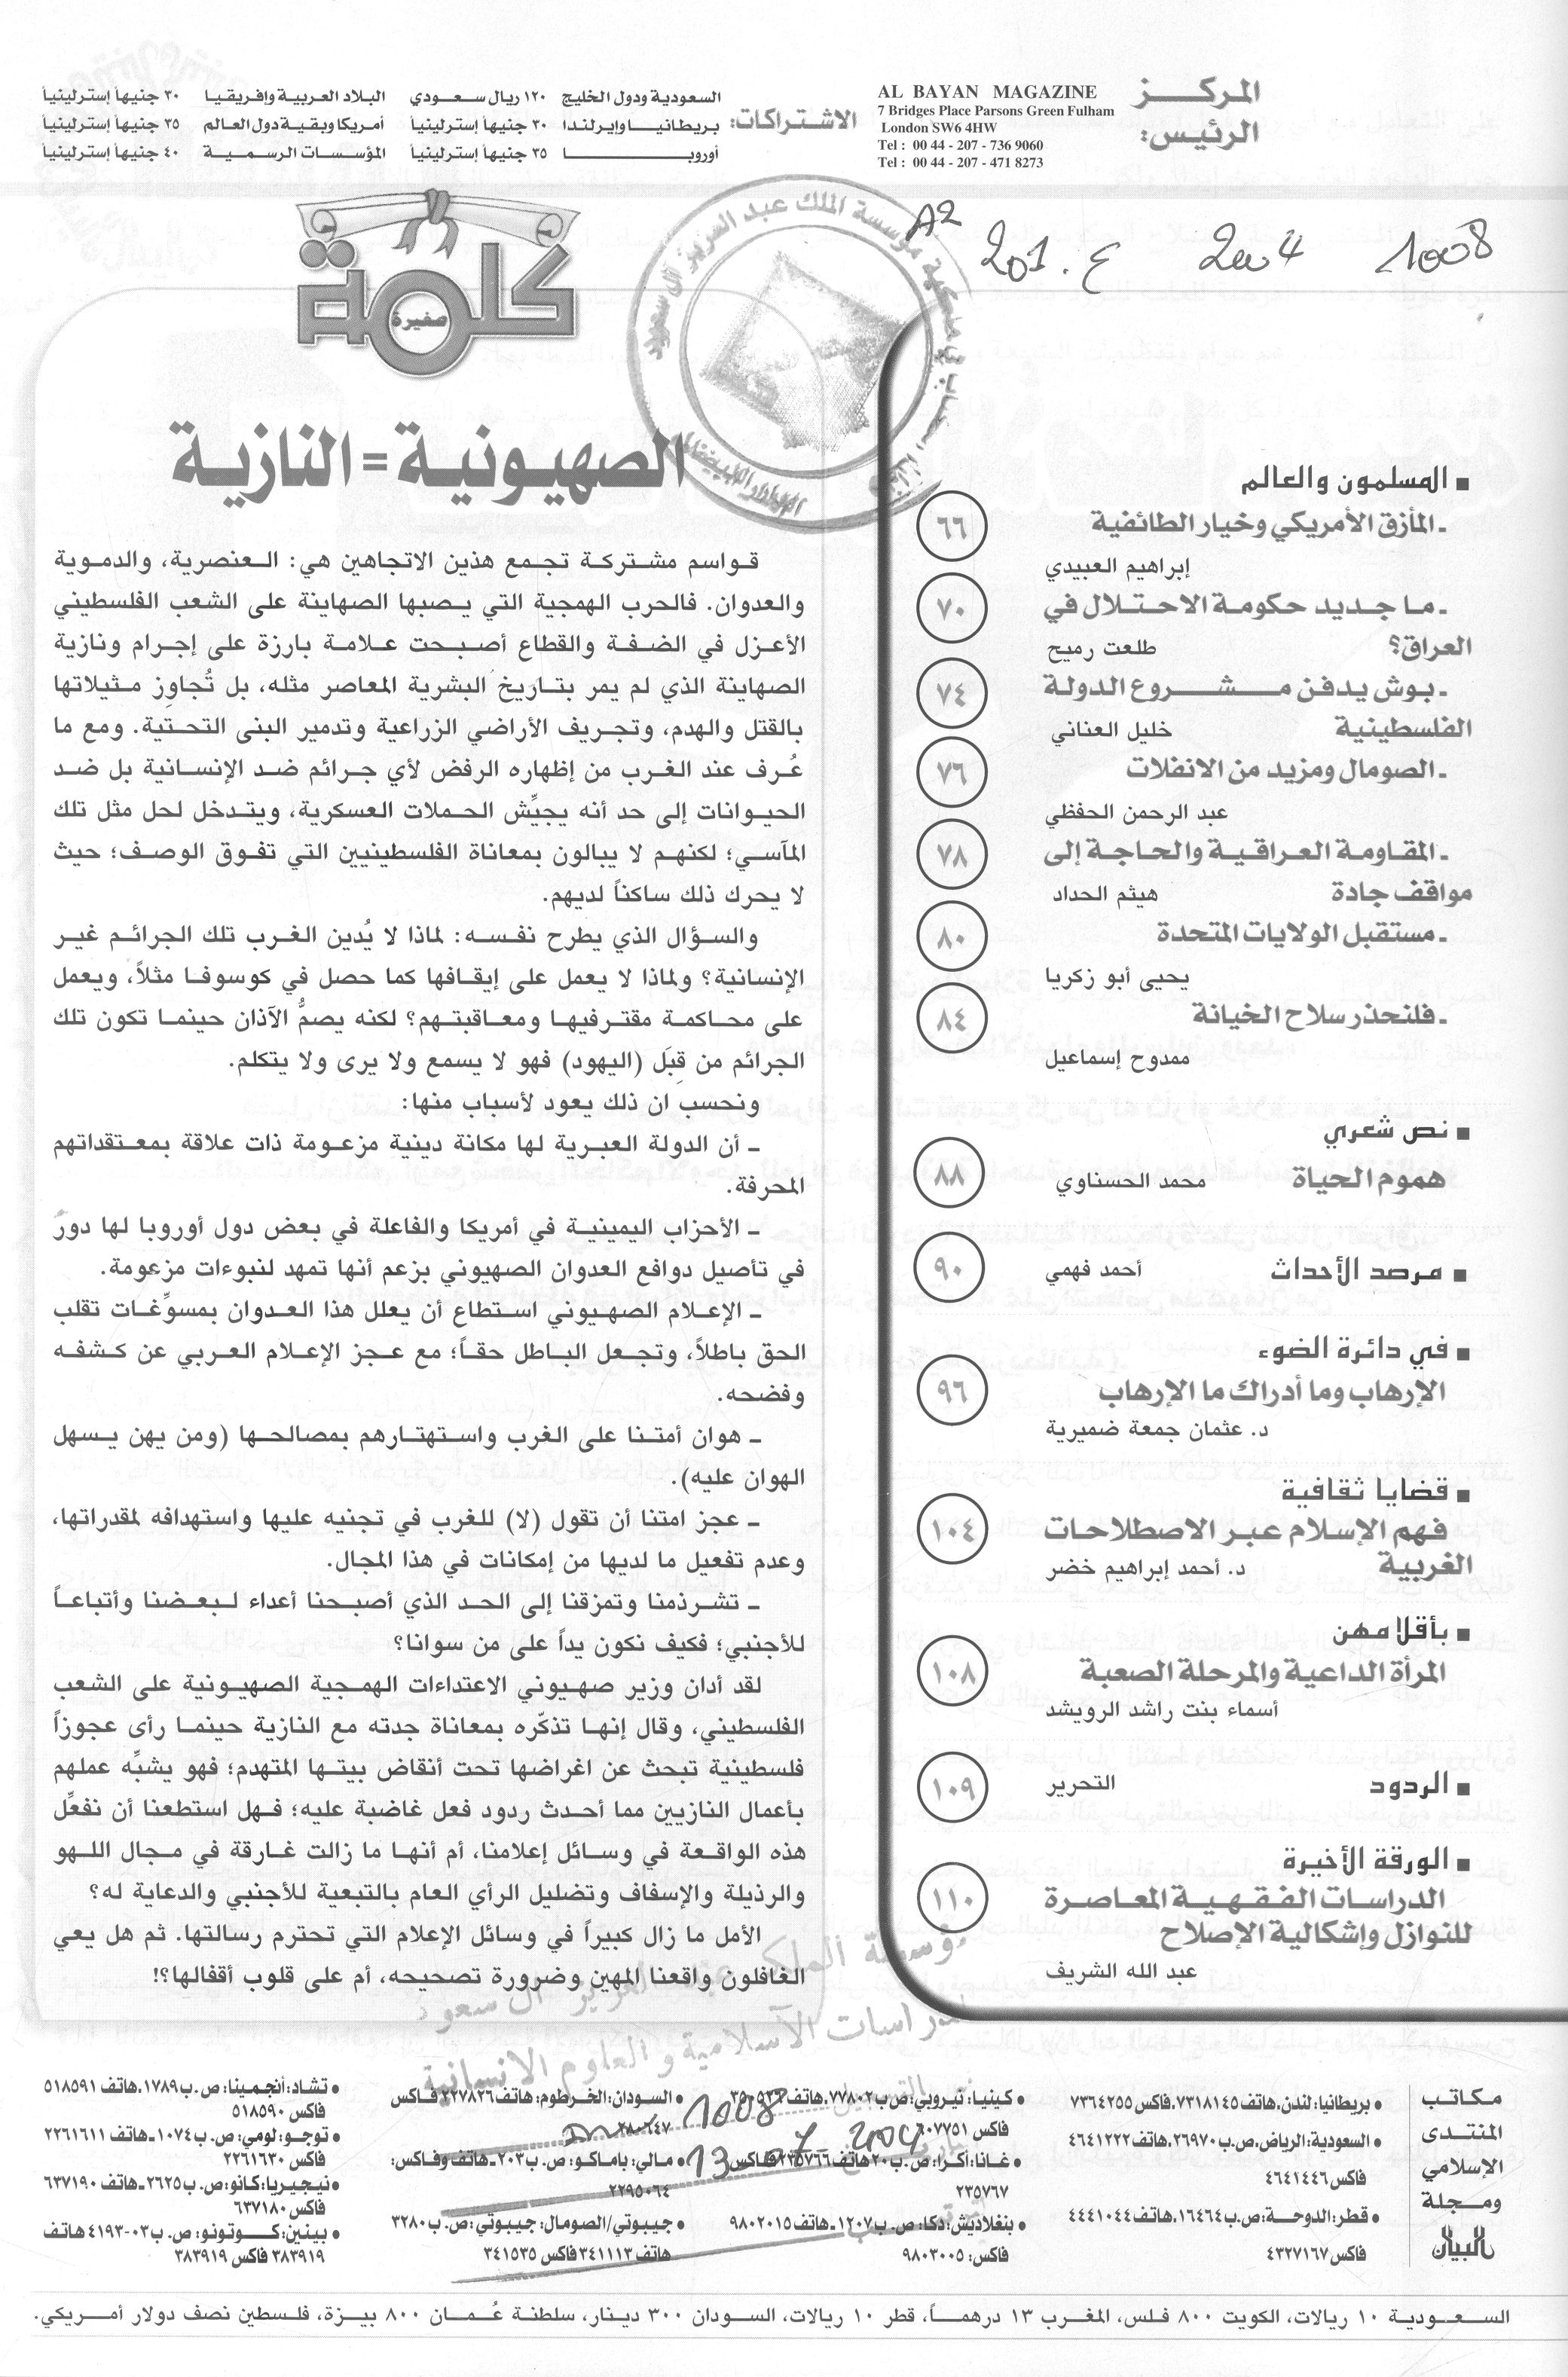 المركز
الرئيس:
AL BAYAN MAGAZINE
7 Bridges Place Parsons Green Fulham
London SW6 4HW
Tel : 00 44 - 207 - 736 9060
Tel : 00 44 - 207 - 471 8273
الاشتراكات:
السعودية ودول الخليج ١٢٠ ريال سعودي
بريطانيا وإيرلندا ٣٠ جنيهاً إسترلينياً
أوروبا ٣٥ جنيهاً إسترلينياً
البلاد العربية وإفريقيا ٣٠ جنيهاً إسترلينياً
أمريكا وبقية دول العالم ٣٥ جنيهاً إسترلينياً
المؤسسات الرسمية ٤٠ جنيهاً إسترلينياً
A2
201.ع 2004 1008
■ المسلمون والعالم
ـ المأزق الأمريكي وخيار الطائفية ٦٦
إبراهيم العبيدي
ـ ما جديد حكومة الاحتلال في ٧٠
العراق؟ طلعت رميح
ـ بوش يدفن مشروع الدولة ٧٤
الفلسطينية خليل العناني
ـ الصومال ومزيد من الانفلات ٧٦
عبد الرحمن الحفظي
ـ المقاومة العراقية والحاجة إلى ٧٨
مواقف جادة هيثم الحداد
ـ مستقبل الولايات المتحدة ٨٠
يحيى أبو زكريا
ـ فلنحذر سلاح الخيانة ٨٤
ممدوح إسماعيل
■ نص شعري
هموم الحياة محمد الحسناوي ٨٨
■ مرصد الأحداث أحمد فهمي ٩٠
■ في دائرة الضوء
الإرهاب وما أدراك ما الإرهاب ٩٦
د. عثمان جمعة ضميرية
■ قضايا ثقافية
فهم الإسلام عبر الاصطلاحات ١٠٤
الغربية د. أحمد إبراهيم خضر
■ بأقلامهن
المرأة الداعية والمرحلة الصعبة ١٠٨
أسماء بنت راشد الرويشد
■ الردود التحرير ١٠٩
■ الورقة الأخيرة
الدراسات الفقهية المعاصرة ١١٠
للنوازل وإشكالية الإصلاح
عبد الله الشريف
كلمة
صغيرة
الصهيونية = النازية
قواسم مشتركة تجمع هذين الاتجاهين هي: العنصرية، والدموية
والعدوان. فالحرب الهمجية التي يصبها الصهاينة على الشعب الفلسطيني
الأعزل في الضفة والقطاع أصبحت علامة بارزة على إجرام ونازية
الصهاينة الذي لم يمر بتاريخ البشرية المعاصر مثله، بل تُجاوِز مثيلاتها
بالقتل والهدم، وتجريف الأراضي الزراعية وتدمير البنى التحتية. ومع ما
عُرف عند الغرب من إظهاره الرفض لأي جرائم ضد الإنسانية بل ضد
الحيوانات إلى حد أنه يجيِّش الحملات العسكرية، ويتدخل لحل مثل تلك
المآسي؛ لكنهم لا يبالون بمعاناة الفلسطينيين التي تفوق الوصف؛ حيث
لا يحرك ذلك ساكناً لديهم.
والسؤال الذي يطرح نفسه: لماذا لا يُدين الغرب تلك الجرائم غير
الإنسانية؟ ولماذا لا يعمل على إيقافها كما حصل في كوسوفا مثلاً، ويعمل
على محاكمة مقترفيها ومعاقبتهم؟ لكنه يصمُّ الآذان حينما تكون تلك
الجرائم من قِبَل (اليهود) فهو لا يسمع ولا يرى ولا يتكلم.
ونحسب ان ذلك يعود لأسباب منها:
ـ أن الدولة العبرية لها مكانة دينية مزعومة ذات علاقة بمعتقداتهم
المحرفة.
ـ الأحزاب اليمينية في أمريكا والفاعلة في بعض دول أوروبا لها دورٌ
في تأصيل دوافع العدوان الصهيوني بزعم أنها تمهد لنبوءات مزعومة.
ـ الإعلام الصهيوني استطاع أن يعلل هذا العدوان بمسوِّغات تقلب
الحق باطلاً، وتجعل الباطل حقاً؛ مع عجز الإعلام العربي عن كشفه
وفضحه.
ـ هوان أمتنا على الغرب واستهتارهم بمصالحها (ومن يهن يسهل
الهوان عليه).
ـ عجز امتنا أن تقول (لا) للغرب في تجنيه عليها واستهدافه لمقدراتها،
وعدم تفعيل ما لديها من إمكانات في هذا المجال.
ـ تشرذمنا وتمزقنا إلى الحد الذي أصبحنا أعداء لبعضنا وأتباعاً
للأجنبي؛ فكيف نكون يداً على من سوانا؟
لقد أدان وزير صهيوني الاعتداءات الهمجية الصهيونية على الشعب
الفلسطيني، وقال إنها تذكّره بمعاناة جدته مع النازية حينما رأى عجوزاً
فلسطينية تبحث عن اغراضها تحت أنقاض بيتها المتهدم؛ فهو يشبِّه عملهم
بأعمال النازيين مما أحدث ردود فعل غاضبة عليه؛ فهل استطعنا أن نفعِّل
هذه الواقعة في وسائل إعلامنا، أم أنها ما زالت غارقة في مجال اللهو
والرذيلة والإسفاف وتضليل الرأي العام بالتبعية للأجنبي والدعاية له؟
الأمل ما زال كبيراً في وسائل الإعلام التي تحترم رسالتها. ثم هل يعي
الغافلون واقعنا المهين وضرورة تصحيحه، أم على قلوب أقفالها؟!
مكاتب
المنتدى
الإسلامي
ومجلة
البيان
● بريطانيا: لندن، هاتف ٧٣١٨١٤٥، فاكس ٧٣٦٤٢٥٥
● السعودية: الرياض، ص.ب ٢٦٩٧٠، هاتف ٤٦٤١٢٢٢
فاكس ٤٦٤١٤٤٦
● قطر: الدوحة: ص.ب ١٦٤٦٤، هاتف ٤٤٤١٠٤٤
فاكس ٤٣٢٧١٦٧
● كينيا: نيروبي: ص ب ٧٧٨٠٢، هاتف
فاكس ٦٠٧٧٥١
● غانا: أكرا: ص.ب ٢٠ هاتف ٢٣٥٧٦٦ فاكس
٢٣٥٧٦٧
● بنغلاديش: دكا: ص. ب ١٢٠٧ ـ هاتف ٩٨٠٢٠١٥
فاكس: ٩٨٠٣٠٠٥
● السودان: الخرطوم: هاتف ٢٢٧٨٢٦ فاكس
● مالي: باماكو: ص. ب ٢٠٣ ـ هاتف وفاكس:
٢٢٩٥٠٦٤
● جيبوتي/الصومال: جيبوتي: ص. ب ٣٢٨٠
هاتف ٣٤١١١٣ فاكس ٣٤١٥٣٥
● تشاد: أنجمينا: ص. ب ١٧٨٩، هاتف ٥١٨٥٩١
فاكس ٥١٨٥٩٠
● توجو: لومي: ص. ب ١٠٧٤ ـ هاتف ٢٢٦١٦١١
فاكس ٢٢٦١٦٣٠
● نيجيريا: كانو: ص. ب ٢٦٢٥ ـ هاتف ٦٣٧١٩٠
فاكس ٦٣٧١٨٠
● بينين: كوتونو: ص. ب ٠٣-٤١٩٣ هاتف
٣٨٣٩١٩ فاكس ٣٨٣٩١٩
السعودية ١٠ ريالات، الكويت ٨٠٠ فلس، المغرب ١٣ درهماً، قطر ١٠ ريالات، السودان ٣٠٠ دينار، سلطنة عُمان ٨٠٠ بيزة، فلسطين نصف دولار أمريكي.